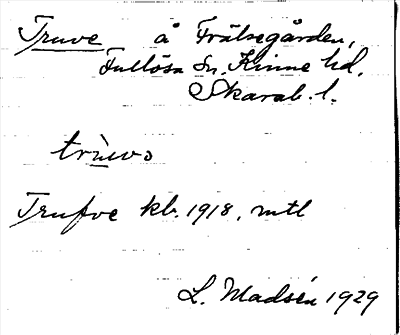 Truve å Frälsegården,
Fullösa sn. Kinne hd.
Skarab. l.
trùvo
Trufve kb. 1918, mtl
L. Madsén 1929